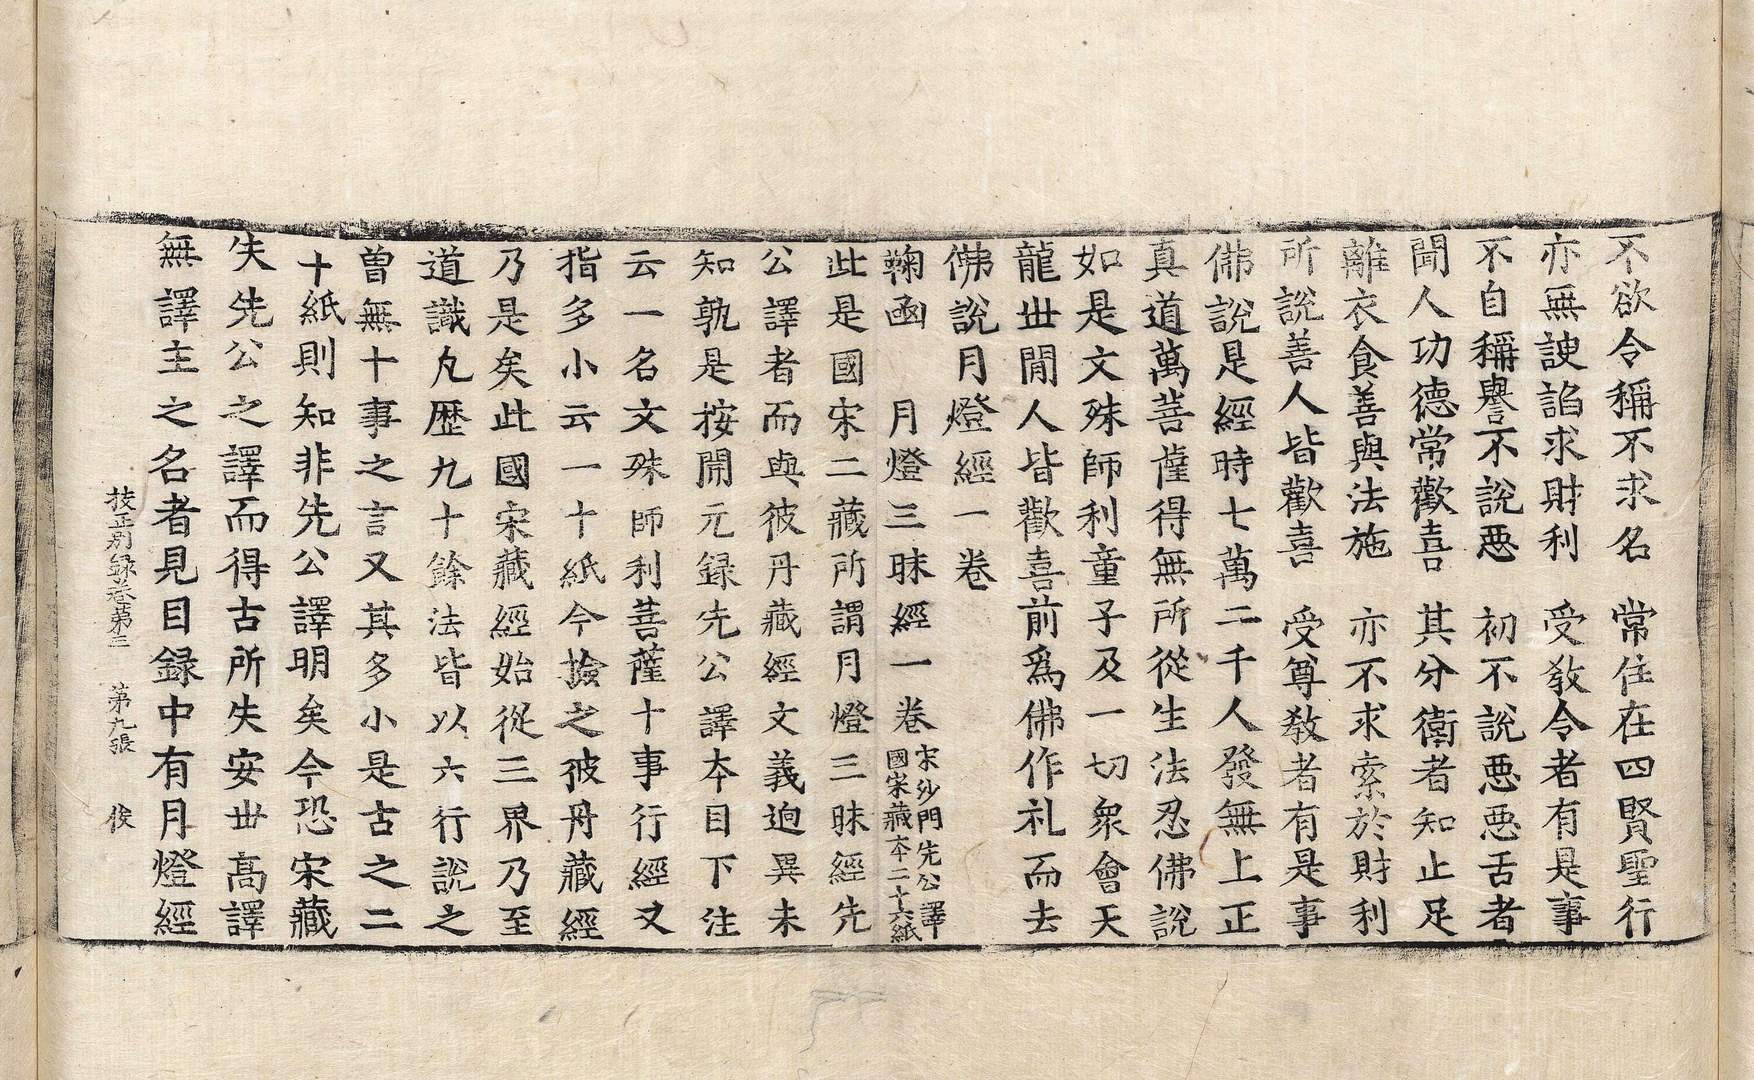 不欲令稱不求名　常住在四賢聖行
亦無諛諂求財利　受教令者有是事
不自稱譽不說惡　初不說惡惡舌者
聞人功德常歡喜　其分衛者知止足
離衣食善與法施　亦不求索於財利
所說善人皆歡喜　受尊教者有是事
佛說是經時七萬二千人發無上正
真道萬菩薩得無所從生法忍佛說
如是文殊師利童子及一切衆會天
龍世閒人皆歡喜前爲佛作礼而去
佛說月燈經一卷
鞠函　月燈三昧經一卷
宋沙門先公譯
國宋藏本二十六紙
此是國宋二藏所謂月燈三昧經先
公譯者而與彼丹藏經文義逈異未
知孰是按開元録先公譯本目下注
云一名文殊師利菩薩十事行經又
指多小云一十紙今撿之彼丹藏經
乃是矣此國宋藏經始從三界乃至
道識凡歷九十餘法皆以六行說之
曾無十事之言又其多小是古之二
十紙則知非先公譯明矣今恐宋藏
失先公之譯而得古所失安世高譯
無譯主之名者見目録中有月燈經
挍正別録卷第三　第九張　俊